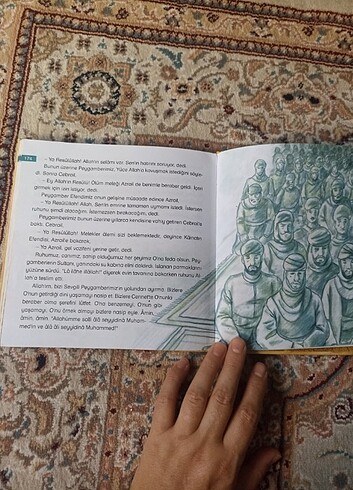 174
– Ya Resûlüllah! Allah'ın selâmı var. Senin halini soruyor, dedi.
Bunun üzerine Peygamberimiz, Yüce Allah'a kavuşmak istediğini söyle-
di. Sonra Cebrail,
– Ey Allah'ın Resûlü! Ölüm meleği Azrail de benimle beraber geldi. İçeri
girmek için izin istiyor, dedi.
Peygamber Efendimiz onun gelişine müsaade edince Azrail,
– Ya Resûlüllah! Allah, Senin emrine tamamen uymamı istedi. İstersen
ruhunu şimdi alacağım. İstemezsen bırakacağım, dedi.
Peygamberimiz bunun üzerine yıllarca kendisine vahiy getiren Cebrail'e
baktı. Cebrail,
– Ya Resûlüllah! Melekler âlemi sizi beklemektedir, deyince Kâinatın
Efendisi, Azrail'e bakarak,
– Ya Azrail, gel vazifeni yerine getir, dedi.
Ruhumuz, canımız, sahip olduğumuz her şeyimiz O'na feda olsun, Pey-
gamberlerin Sultanı, yanındaki su kabına elini daldırdı. Islanan parmaklarını
yüzüne sürdü. "Lâ ilâhe illâllah!" diyerek evin tavanına bakarken ruhunu Al-
lah'a teslim etti.
Allah'ım, bizi Sevgili Peygamberimizin yolundan ayırma. Bizlere
O'nun getirdiği dini yaşamayı nasip et. Bizlere Cennette O'nunla
beraber olma şerefini lütfet. O'na benzemeyi, O'nun gibi
yaşamayı, O'nu örnek almayı bizlere nasip eyle. Âmin,
âmin, âmin. "Allahümme salli âlâ seyyidinâ Muham-
med'in ve âlâ âli seyyidinâ Muhammed!"